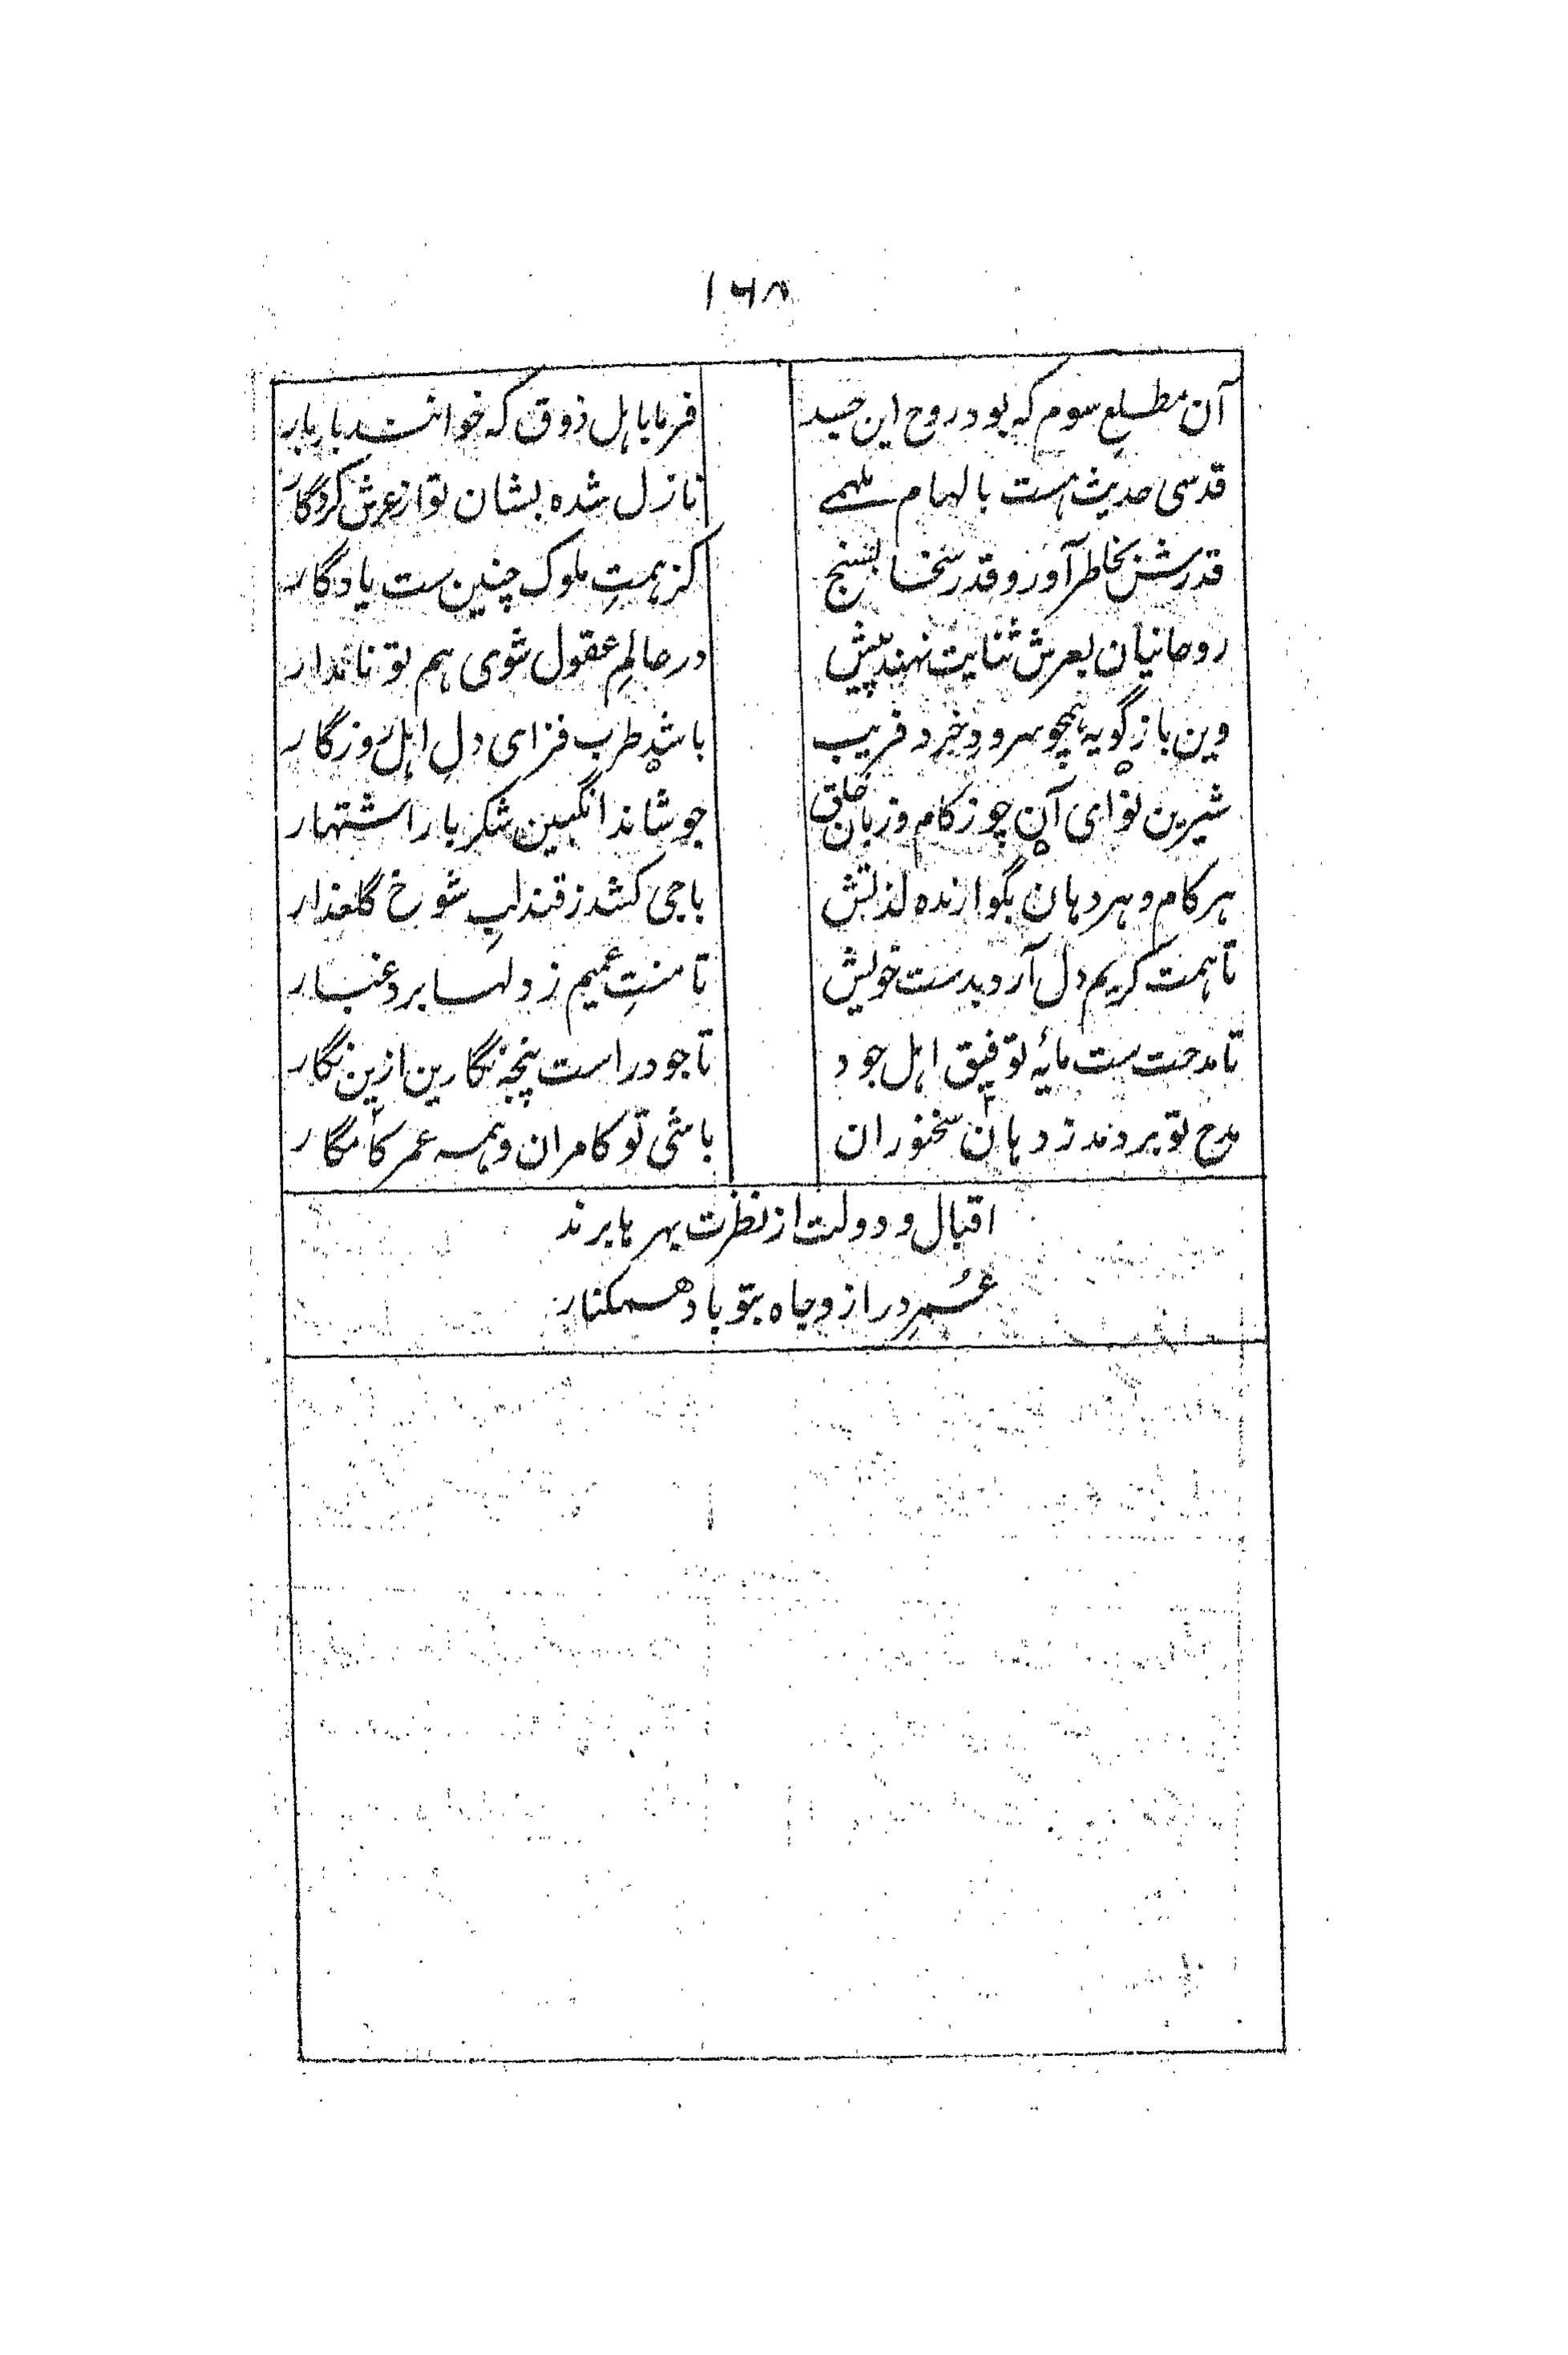 ۱۶۸
آن مطلعِ سوم که بود روح این جسد
فرما باہل ذوق که خوانند بار بار
قدسی حدیث ہست بالهام ملہمے
نازل شده بشان تو از عرش کردگار
قدرسشن بخاطر آور و قدر سخا بسنج
کز ہمتِ ملوک چنین ست یادگار
روحانیان بعرش ثنایت نہند پیش
در عالمِ عقول شوی ہم تو نامدار
وین باز گویه ہمچو سرود خرد فریب
باشد طرب فزای دلِ اہل روزگار
شیرین نوای آن چو ز کام و زبان خلق
جوشاند انگبین شکر بار اشتہار
ہر کام و ہر دہان بگوارنده لذتش
باجی کشد ز قند لبِ شوخ گلعذار
تا ہمت کریم دل آرد بدست خویش
تا منتِ عمیم ز دلہا برد غبار
تا مدحت ست مایۂ توفیق اہل جود
تا جود راست پنجہ نگارین ازین نگار
مدح تو بر دمد ز دہان سخنوران
باشی تو کامران و ہمہ عمر کامگار
اقبال و دولت از نظرت بہرہا برند
عُمرِ دراز و جاه بتو باد ہمکنار